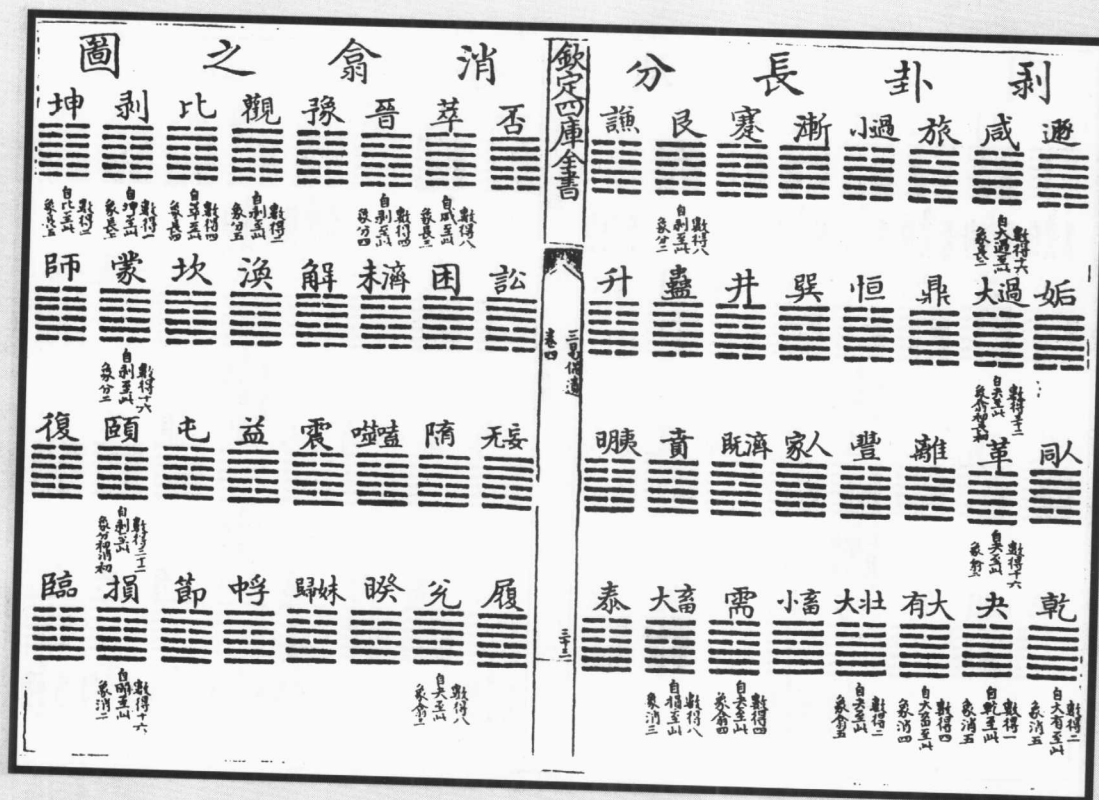 剥卦長分
遯 咸 旅 小過 漸 蹇 艮 謙
數得十六
自大過至此
象長二
數得八
自剥至此
姤 大過 鼎 恒 巽 井 蠱 升
數得三十二
自夬至此
象翕初長初
同人 革 離 豐 家人 既濟 賁 明夷
數得十六
自夬至此
象翕二
乾 夬 大有 大壯 小畜 需 大畜 泰
數得二
自大有至此
象消五
數得一
自乾至此
象消五
數得四
自大畜至此
象消四
數得二
自夬至此
象翕五
數得四
自夬至此
象翕四
數得八
自損至此
象消三
欽定四庫全書
三易備遺
卷四
三十二
消翕之圖
否 萃 晉 豫 觀 比 剥 坤
數得八
自咸至此
象長三
數得四
自剥至此
象分四
數得二
自剥至此
象分五
數得四
自萃至此
象長四
數得一
自坤至此
象長五
數得二
自比至此
象長五
訟 困 未濟 解 渙 坎 蒙 師
數得十六
自剥至此
象分二
无妄 隨 噬嗑 震 益 屯 頤 復
數得三十二
自剥至此
象分初消初
履 兌 睽 歸妹 中孚 節 損 臨
數得八
自夬至此
數得十六
自頤至此
象消二